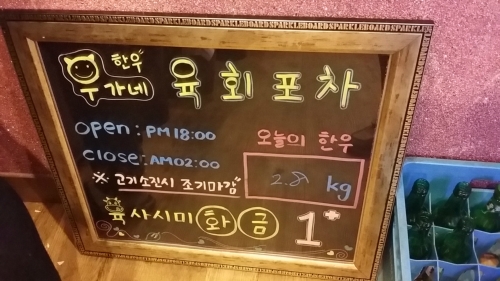 한우
우가네 육회포차
open : PM 18:00
close : AM 02:00
※ 고기소진시 조기마감
오늘의 한우
2.8 kg
육사시미 화 금 1+